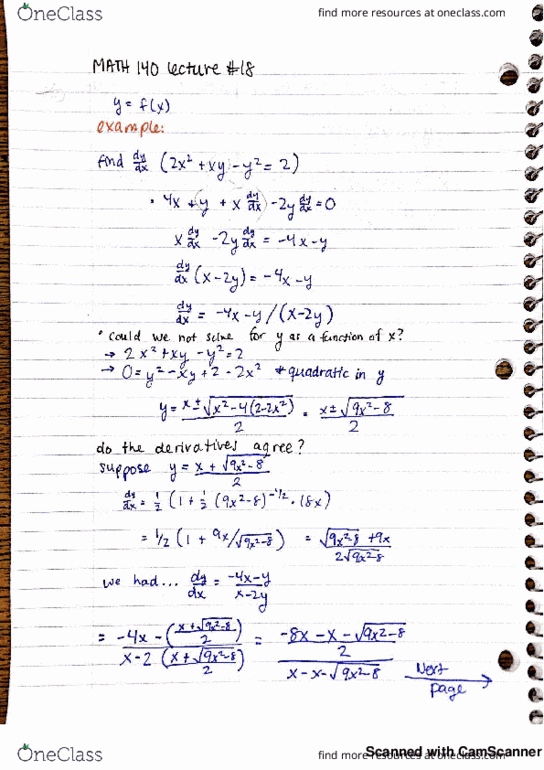 OneClass
find more resources at oneclass.com
MATH 140 lecture #18
y = f(x)
example:
find dy/dx (2x² + xy - y² = 2)
• 4x + (y + x dy/dx) - 2y dy/dx = 0
x dy/dx - 2y dy/dx = -4x - y
dy/dx (x - 2y) = -4x - y
dy/dx = -4x - y / (x - 2y)
* could we not solve for y as a function of x?
→ 2x² + xy - y² = 2
→ 0 = y² - xy + 2 - 2x² * quadratic in y
y = x ± √x² - 4(2 - 2x²) / 2 = x ± √9x² - 8 / 2
do the derivatives agree?
suppose y = x + √9x² - 8 / 2
dy/dx = 1/2 (1 + 1/2 (9x² - 8)^-1/2 · (18x)
= 1/2 (1 + 9x/√9x² - 8) = √9x² - 8 + 9x / 2√9x² - 8
we had... dy/dx = -4x - y / x - 2y
= -4x - (x + √9x² - 8 / 2) / x - 2 (x + √9x² - 8 / 2) = -8x - x - √9x² - 8 / 2 / x - x - √9x² - 8
Next page →
OneClass
find more resources at oneclass.com
Scanned with CamScanner